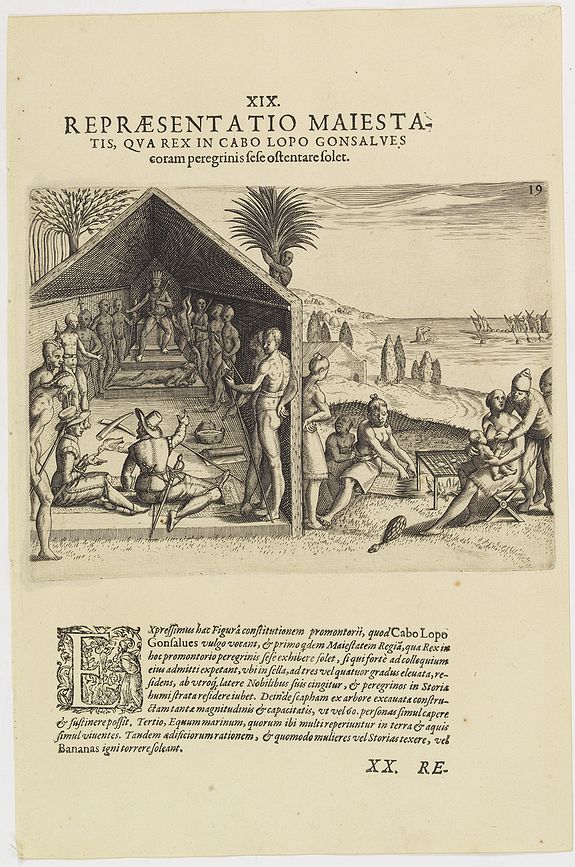 XIX.
REPRÆSENTATIO MAIESTA-
TIS, QVA REX IN CABO LOPO GONSALVES
coram peregrinis sese ostentare solet.
19
EXpressimus hac Figurâ constitutionem promontorii, quod Cabo Lopo
Gonsalves vulgo vocant, & primo qdem Maiestatem Regiã, qua Rex in
hoc promontorio peregrinis sese exhibere solet, si qui fortè ad colloquium
eius admitti expetant, vbi in sella, ad tres vel quatuor gradus eleuata, re-
sidens, ab vtroq; latere Nobilibus suis cingitur, & peregrinos in Storia
humi strata residere iubet. Deinde scapham ex arbore excauata constru-
ctam tantæ magnitudinis & capacitatis, vt vel 60. personas simul capere
& sustinere possit. Tertio, Equum marinum, quorum ibi multi reperiuntur in terra & aquis
simul viuentes. Tandem ædificiorum rationem, & quomodo mulieres vel Storias texere, vel
Bananas igni torrere soleant.
XX. RE-